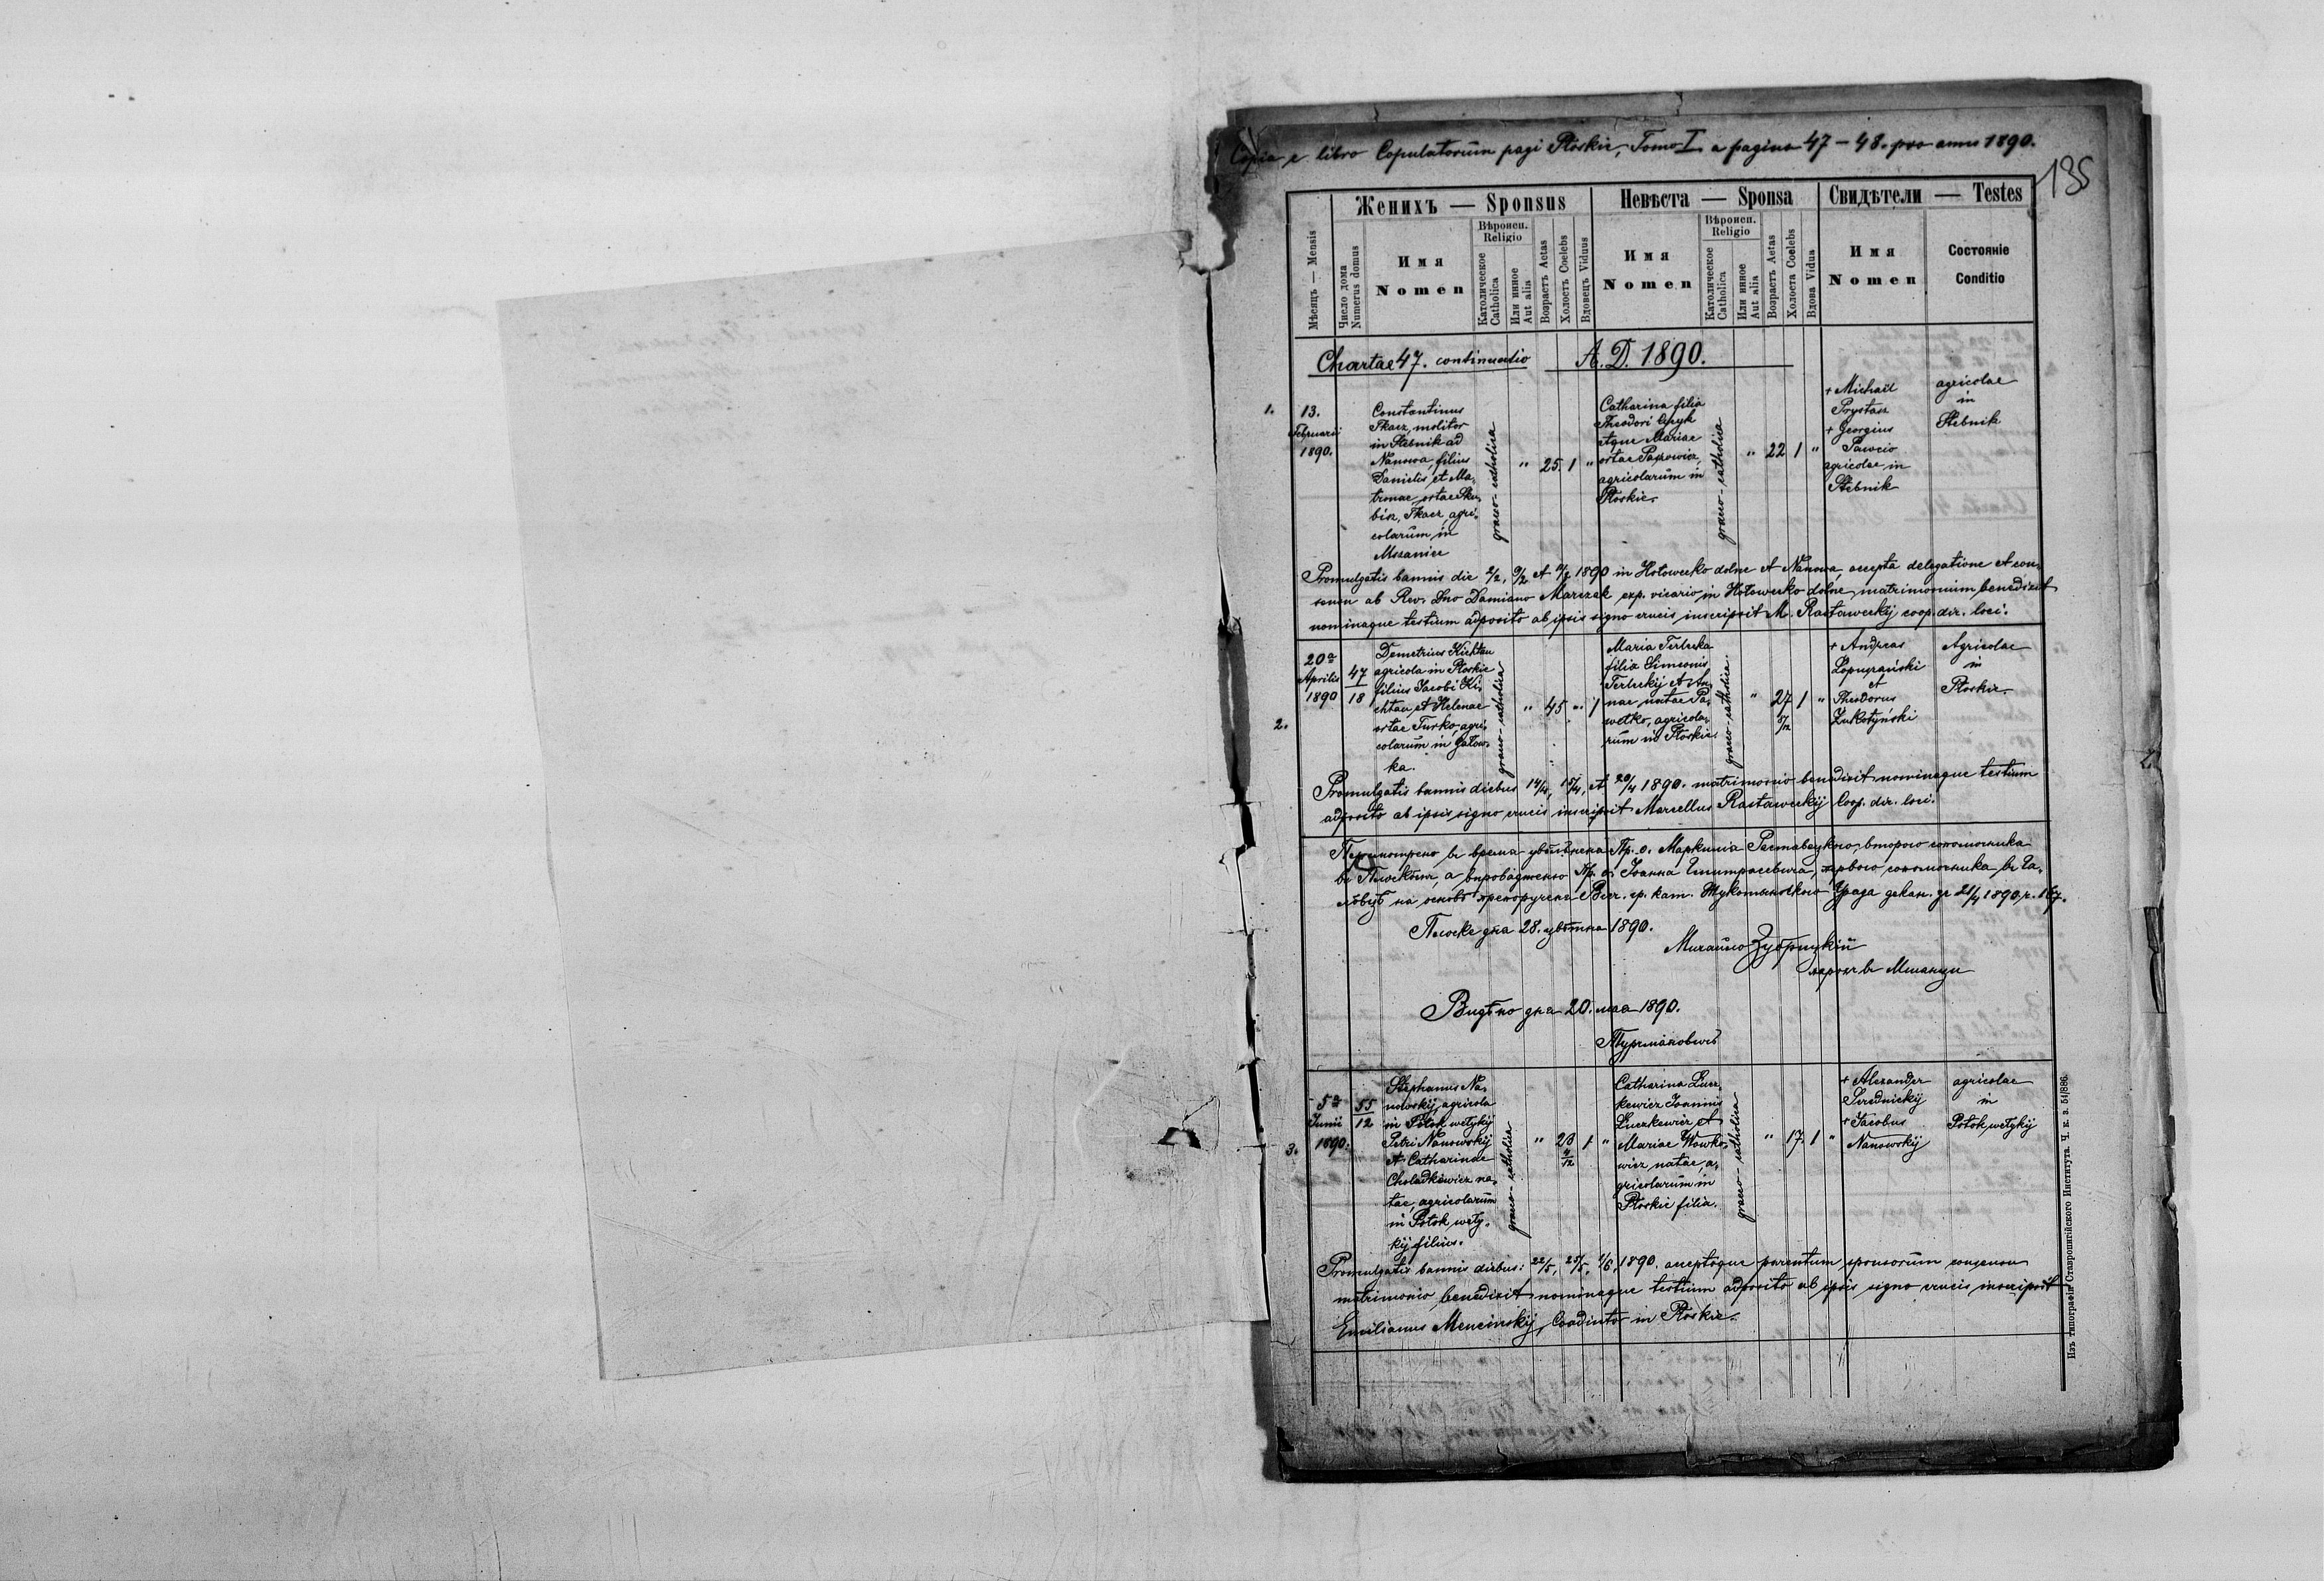 Copia e libro Copulatorum pagi Płoskie, Tomo I a pagina 47 – 48. pro anno 1890.
135
Женихъ — Sponsus
Невѣста — Sponsa
Свидѣтели — Testes
Мѣсяцъ — Mensis
Число дома
Numerus domus
Имя
Nomen
Вѣроисп.
Religio
Католическое
Catholica
Или инное
Aut alia
Возрастъ Aetas
Холостъ Coelebs
Вдовецъ Viduus
Имя
Nomen
Вѣроисп.
Religio
Католическое
Catholica
Или инное
Aut alia
Возрастъ Aetas
Холоста Coelebs
Вдова Vidua
Имя
Nomen
Состояніе
Conditio
Chartae 47. continuatio A. D. 1890.
1.
13.
Februarii
1890.
Constantinus
Tkacz, molitor
in Stebnik ad
Nanowa, filius
Danielis et Ma-
tronae, ortae
Tkacz, agri-
colarum in
Mszanice
graeco-catholica
" 25. 1 "
Catharina filia
Theodori
atque Mariae
ortae
agricolarum in
Płoskie.
graeco-catholica
" 22 1 "
+ Michail
Prystasz
+ Georgius
Pawcio
agricolae in
Stebnik
agricolae
in
Stebnik
Promulgatis bannis die 2/2, 9/2 et 1890 in Hołowecko dolne et Nanowa, accepta delegatione et con-
sensu ab Rev. Dno Damiano Marczak exp. vicario in Hołowecko dolne, matrimonium benedixit
nominaque testium adposito ab ipsis signo crucis inscripsit M. Rastaweckij coop. dir. loci.
2.
20a
Aprilis
1890
47
18
Demetrius Kichtan
agricola in Płoskie
filius Jacobi Ki-
chtan, et Helenae
ortae Turko, agri-
colarum in Gałow-
ka.
graeco-catholica
" 45 " 1
Maria Terlecka
filia Simeonis
Terleckij et An-
nae natae Pa-
wełko, agricola-
rum in Płoskie.
graeco-catholica
" 27 5/12 1 "
+ Andreas
Łopuszański
et
Theodorus
Żukotyński
Agricolae
in
Płoskie.
Promulgatis bannis diebus 14/4, 15/4, et 20/4 1890. matrimonio benedixit nominaque testium
adposito ab ipsis signo crucis inscripsit Marcellus Rastaweckij Coop. dir. loci.
въ время Пр. о. второго сопомощника
а Пр. о. Іоанна первого сопомощника въ Га-
на основѣ гр. кат. Жукотинского Уряда декан. де 21/4 1890 р. 167.
Плоске дня 28. цвѣтня 1890.
Михайло Зубрицкій
парохъ въ Мшанци
Видѣно дня 20. мая 1890.
3.
5a
Junii
1890.
55
12
Stephanus Na-
nowskij, agricola
in Potok wełykij
Petri Nanowskij
et Catharinae
Choladkiewicz na-
tae, agricolarum
in Potok weły-
kij filius.
graeco-catholica
" 23 4/12 1 "
Catharina Łucz-
kewicz Joannis
Łuczkewicz et
Mariae Wowko-
wicz natae, a-
gricolarum in
Płoskie filia.
graeco-catholica
" 17. 1 "
+ Alexander
Serednickij
+ Jacobus
Nanowskij
agricolae
in
Potok wełykij
Promulgatis bannis diebus: 22/5, 25/5, 1/6, 1890. acceptoque parentum sponsorum consensu
matrimonio benedixit nominaque testium adposito ab ipsis signo crucis inscripsit
Emilianus Mencinskij, Coadiutor in Płoskie.
Изъ типографіи Ставропигійского Института. Ч. к. з. 51/886.